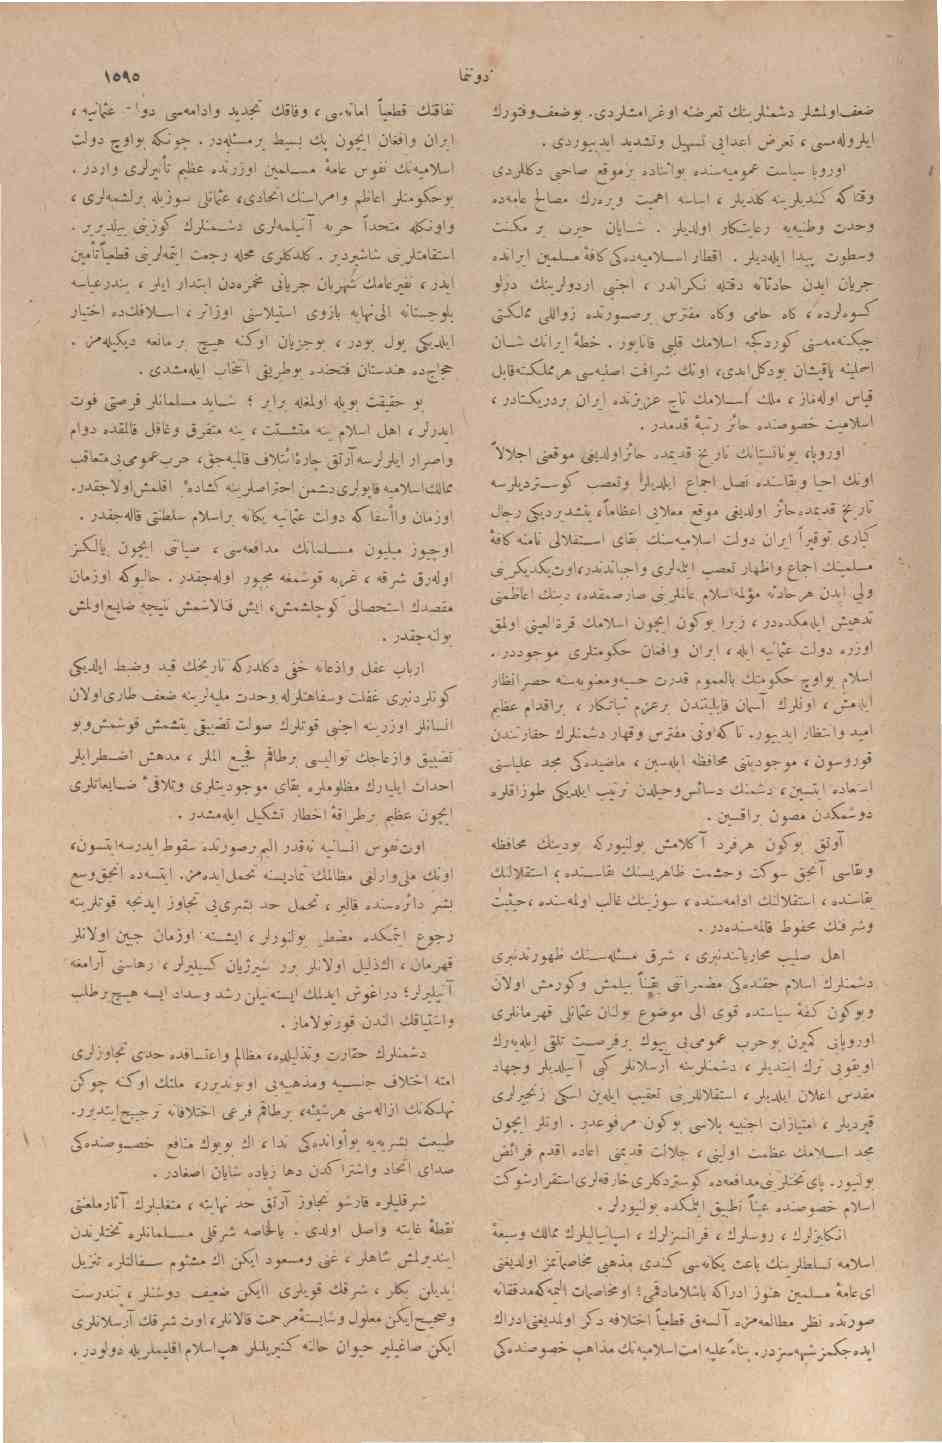 دوننما
١٥٩٥
ضعف اولمشلر دشمنلرینك تعرضنه اوغرامشلردی. بوضعف وفتورك
ایلروله‌مسی، تعرض اعدایی تسهیل وتشدید ایدییوردی.
اوروپا سیاست عمومیه‌سنده بواثناده برموقع صاحبی دكللردی
وقتاكه كندیلرینه كلدیلر، اساسه اهمیت ویره‌رك مصالح عامه‌ده
وحدت وطنیه‌یه رعایتكار اولدیلر. شایان حیرت بر مكنت
وسطوت پیدا ایله‌دیلر. اقطار اسلامیه‌ده‌كی كافهٔ مسلمین ایرانده
جریان ایدن حادثاته دقتله نكراندر، اجنبی اردولرینك درلو
كسوه‌لرده، كاه حامی وكاه مفترس برصورتده زواللی مملكتی
چیكنه‌مه‌سنی كوردكجه اسلامك قلبی قانایور. خطهٔ ایرانك شان
اصلینه یاقیشان بودكل ایدی، اونك شرافت اصلیه‌سی هرمملكته قابل
قیاس اوله‌ماز، ملك اسلامك تاج عزیزنده ایران بردریكتادر،
اسلامیت خصوصنده حائز رتبهٔ قدمدر.
اوروپا، یونانستانك تاریخ قدیمده حائز اولدیغی موقعی اجلالاً
اونك احیا وبقاسنده نصل اجماع ایلدیلرا وتعصب كوستردیلرسه
تاریخ قدیمده حائز اولدیغی موقع معلایی اعظاماً، یتشدیردیكی رجال
كباری توقیراً ایران دولت اسلامیه‌سنك بقای استقلالی نامنه كافهٔ
مسلمینك اجماع واظهار تعصب ایله‌لری واجباتدندر، اوت یكدیكرینی
ولی ایدن هرحادثه مؤلمه اسلام عالمارینی صارصمقده، دینك اعاظمنی
تدهیش ایله‌مكده‌در، زیرا بوكون ایچون اسلامك قرة‌العینی اولمق
اوزره دولت عثمانیه ایله، ایران وافغان حكومتلری موجوددر.
اسلام بواوچ حكومتك بالعموم قدرت حسیه ومعنویه‌سنه حصر انظار
ایله‌مش، اونلرك آسمان قابلیتندن برعزم ثباتكار، براقدام عظیم
امید وانتظار ایدییور. تاكه اونی مفترس وقهار دشمنلرك حقارتندن
قوروسون، موجودیتنی محافظه ایله‌سین، ماضیده‌كی مجد علیاسنی
استعاده ایتسین، دشمنك دسائس وحیلدن ترتیب ایلدیكی طوزاقلره
دوشمكدن مصون براقسین.
آرتق بوكون هرفرد آكلامش بولنیوركه بودینك محافظه
وبقاسی آنجق شوكت وحشمت ظاهریسنك بقاسنده، استقلالنك
بقاسنده، استقلالنك ادامه‌سنده، سوزینك غالب اولمه‌سنده، حیثیت
وشرفنك محفوظ قالمه‌سنده‌در.
اهل صلیب محارباتندنبری، شرق مسئله‌سنك ظهورندنبری
دشمنلرك اسلام حقنده‌كی مضمراتنی یقیناً بیلمش وكورمش اولان
وبوكون كفهٔ سیاستده قوی الی موضوع بولنان عثمانلی قهرمانلری
اوروپایی كمیرن بوحرب عمومی‌یی بیوك برفرصت تلقی ایله‌یه‌رك
اویقویی ترك ایتدیلر، دشمنلرینه آرسلانلر كبی آتیلدیلر وجهاد
مقدس اعلان ایلدیلر، استقلاللرینی تعقیب ایله‌ین اسكی زنجیرلری
قیردیلر، امتیازات اجنبیه بلاسی بوكون مرفوعدر. اونلر ایچون
مجد اسلامك عظمت اولینی، جلالت قدیمنی اعاده اقدم فرائض
بولنیور. پای‌تختلرینی مدافعه‌ده كوستردكلری خارقه‌لری استقرار شوكت
اسلام خصوصنده عیناً تطبیق ایتمكده بولنیورلر.
انكلیزلرك، روسلرك، فرانسزلرك، اسپانیالیلرك ممالك وسیعهٔ
اسلامه تسلطلرینك باعث یكانه‌سی كندی مذهبی مخاصماتمز اولدیغنی
ای عامهٔ مسلمین هنوز ادراكه باشلامادقمی؟ اومخاصمات الیمه‌كه مدققانه
صورتده نظر مطالعه‌مزه آلسه‌ق قطعیاً اختلافه دكر اولمدیغنی ادراك
ایده‌جكمز شبهه‌سزدر. بناءً علیه امت اسلامیه‌نك مذاهب خصوصنده‌كی
نفاقنك قطعیاً اماته‌سی، وفاقك تجدید وادامه‌سی دولت عثمانیه،
ایران وافغان ایچون پك بسیط برمسئله‌در. چونكه بواوچ دولت
اسلامیه‌نك نفوس عامهٔ مسلمین اوزرنده عظیم تأثیرلری واردر.
بوحكومتلر اعاظم وامراسنك اتحادی، عثمانلی سوزیله برلشمه‌لری،
واونكله متحداً حربه آتیلمه‌لری دشمنلرك كوزینی ییلدیریر.
استقامتلرینی شاشیردیر. كلدكلری محله رجعت ایتمه‌لرینی قطعیاً تأمین
ایدر، نفیرعامك شهربان جریانی محمره‌دن ابتدار ایلر، بندرعباسه
بلوجستانه الی نهایه بازوی استیلاسنی اوزاتر، اسلافك‌ده اختیار
ایلدیكی یول بودر، بوجریان اوكنه هیچ برمانعه دیكیله‌مز.
حجاج‌ده هندستان فتحنده بوطریقی انتخاب ایله‌مشدی.
بو حقیقت بویله اولمغله برابر؛ شاید مسلمانلر فرصتی فوت
ایدرلر، اهل اسلام ینه متشتت، ینه متفرق وغافل قالمقده دوام
واصرار ایلرلرسه آرتق چارهٔ ائتلاف قالمیه‌جق، حرب عمومی‌یی متعاقب
ممالك اسلامیه قاپولری دشمن احتراصلرینه كشاده اقلمش اولاجقدر.
اوزمان واأسفاكه دولت عثمانیه یكانه براسلام سلطنتی قاله‌جقدر.
اوچیوز میلیون مسلمانك مدافعه‌سی، صیانتی ایچون یالكز
اوله‌رق شرقه، غربه قوشمغه مجبور اوله‌جقدر. حالبوكه اوزمان
مقصدك استحصالی كوجلشمش، ایش فنالاشمش نتیجه ضایع اولمش
بولنه‌جقدر.
ارباب عقل واذعانه خفی دكلدركه تاریخك قید وضبط ایلدیكی
كونلردنبری غفلت وسفاهتلرله وحدت ملیه‌لرینه ضعف طاری اولان
انسانلر اوزرینه اجنبی قوتلرك صولت تضییقی یتشمش قوشمش وبو
تضییق وازعاجك توالیسی برطاقم فجیع الملر، مدهش اضطرابلر
احداث ایلیارك مظلوملره بقای موجودیتلری وتلافیٔ ضایعاتلری
ایچون عظیم برطراقهٔ اخطار تشكیل ایله‌مشدر.
اوت نفوس انسانیه نه‌قدر الیم برصورتده سقوط ایدرسه ایتسون،
اونك ملی وارلغی مظالمك تمادیسنه تحمل ایده‌مز. ایتسه‌ده انجق وسع
بشر دائره‌سنده قالیر، تحمل حد بشری‌یی تجاوز ایدنجه قوتلرینه
رجوع ایتمكده مضطر بولنورلر، ایشته اوزمان جبین اولانلر
قهرمان، اك ذلیل اولانلر برر شیرژیان كسیلیرلر، رهاسنی آرامغه
آتیلیرلر؛ دراغوش ایدلمك ایسته‌نیلن رشد وسداد ایسه هیچ برطلب
واشتیاقك الندن قورتولاماز.
دشمنلرك حقارت وتذلیلده، مظالم واعتسافده حدی تجاوزلری
امته اختلاف جنسیه ومذهبیه‌یی اونوتدیرر، ملتك اوكنه چوكن
تهلكه‌نك ازاله‌سنی هرشیئه، برطاقم فرعی اختلافاته ترجیح ایتدیرر.
طبیعت بشریه‌یه بواوانده‌كی ندا، اك بویوك منافع خصوصنده‌كی
صدای اتحاد واشتراكدن دها زیاده شایان اصغادر.
شرقلیلره قارشو تجاوز آرتق حد نهایته، متغلبلرك آثار ملعنتی
نقطهٔ غایته واصل اولدی. بالخاصه شرقلی مسلمانلره تختلرندن
ایندیرلمش شاهلر، غنی ومسعود ایكن اك مشئوم سفالتلره تنزیل
ایدیلن بكلر، شرقك قویلری ایكن ضعیف دوشنلر، تندرست
وصحیح ایكن معلول وشایستهٔ مرحمت قالانلر، اوت شرقك آرسلانلری
ایكن صاغیلیر حیوان حالنه كتیریلنلر هپ اسلام اقلیملریله دولودر.